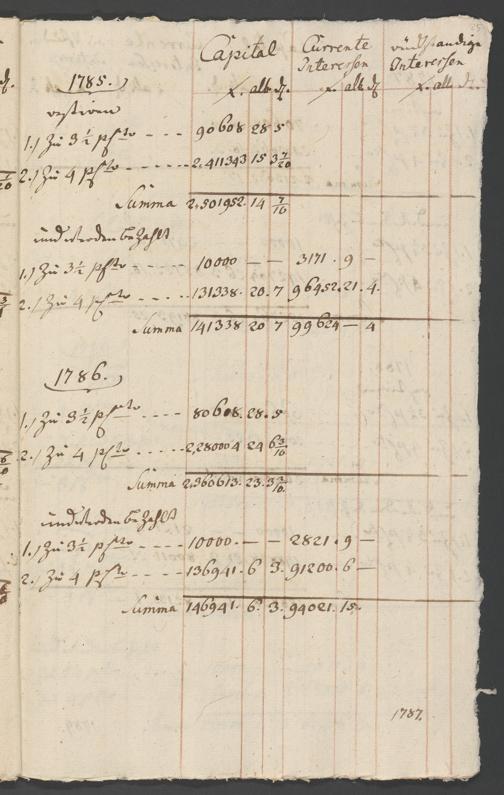 Capital Currente Interessen rückständige Interessen
x. alb. d. x. alb. d. x. alb. d.
1785.
restiren
1.) Zu 3 1/2 pCto - - - 90608 28 5
2.) Zu 4 pCto - - - 2.411343 15 3 7/20
Summa 2.501952. 14 7/10
und werden bezahlt
1.) Zu 3 1/2 pCto - - - 10000 — — 3171. 9 —
2.) Zu 4 pCto - - - 131338. 20. 7 96452. 21. 4.
Summa 141338 20 7 99624 — 4
1786.
1.) Zu 3 1/2 pCto - - - 80608. 28. 5
2.) Zu 4 pCto - - - 2,280004 24 6 3/10
Summa 2,360613. 23. 3 3/10
und werden bezahlt
1.) Zu 3 1/2 pCto - - - 10000. — — 2821. 9 —
2.) Zu 4 pCto - - - 136941. 6 3. 91200. 6 —
Summa 146941. 6. 3. 94021. 15.
1787.